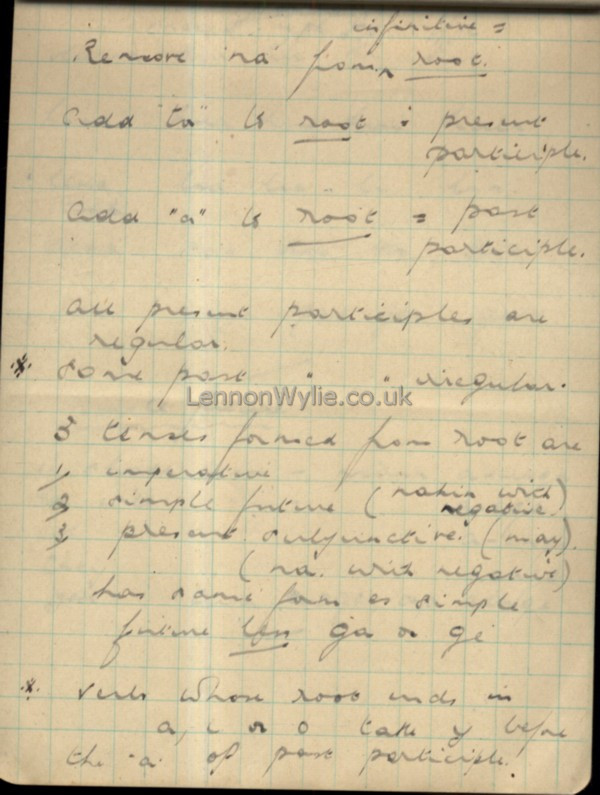 infinitive =
Remove "na" from root.
Add "ta" to root : present
participle.
Add "a" to root = past
participle.
All present participles are
regular.
* Some past " " irregular.
LennonWylie.co.uk
3 tenses formed from root are
1, imperative
2, simple future (nahin with
negative)
3, present subjunctive. (may)
(na. with negative)
has same form as simple
future less ga or gi
* Verbs whose root ends in
a, i or o take y before
the "a" of past participle.